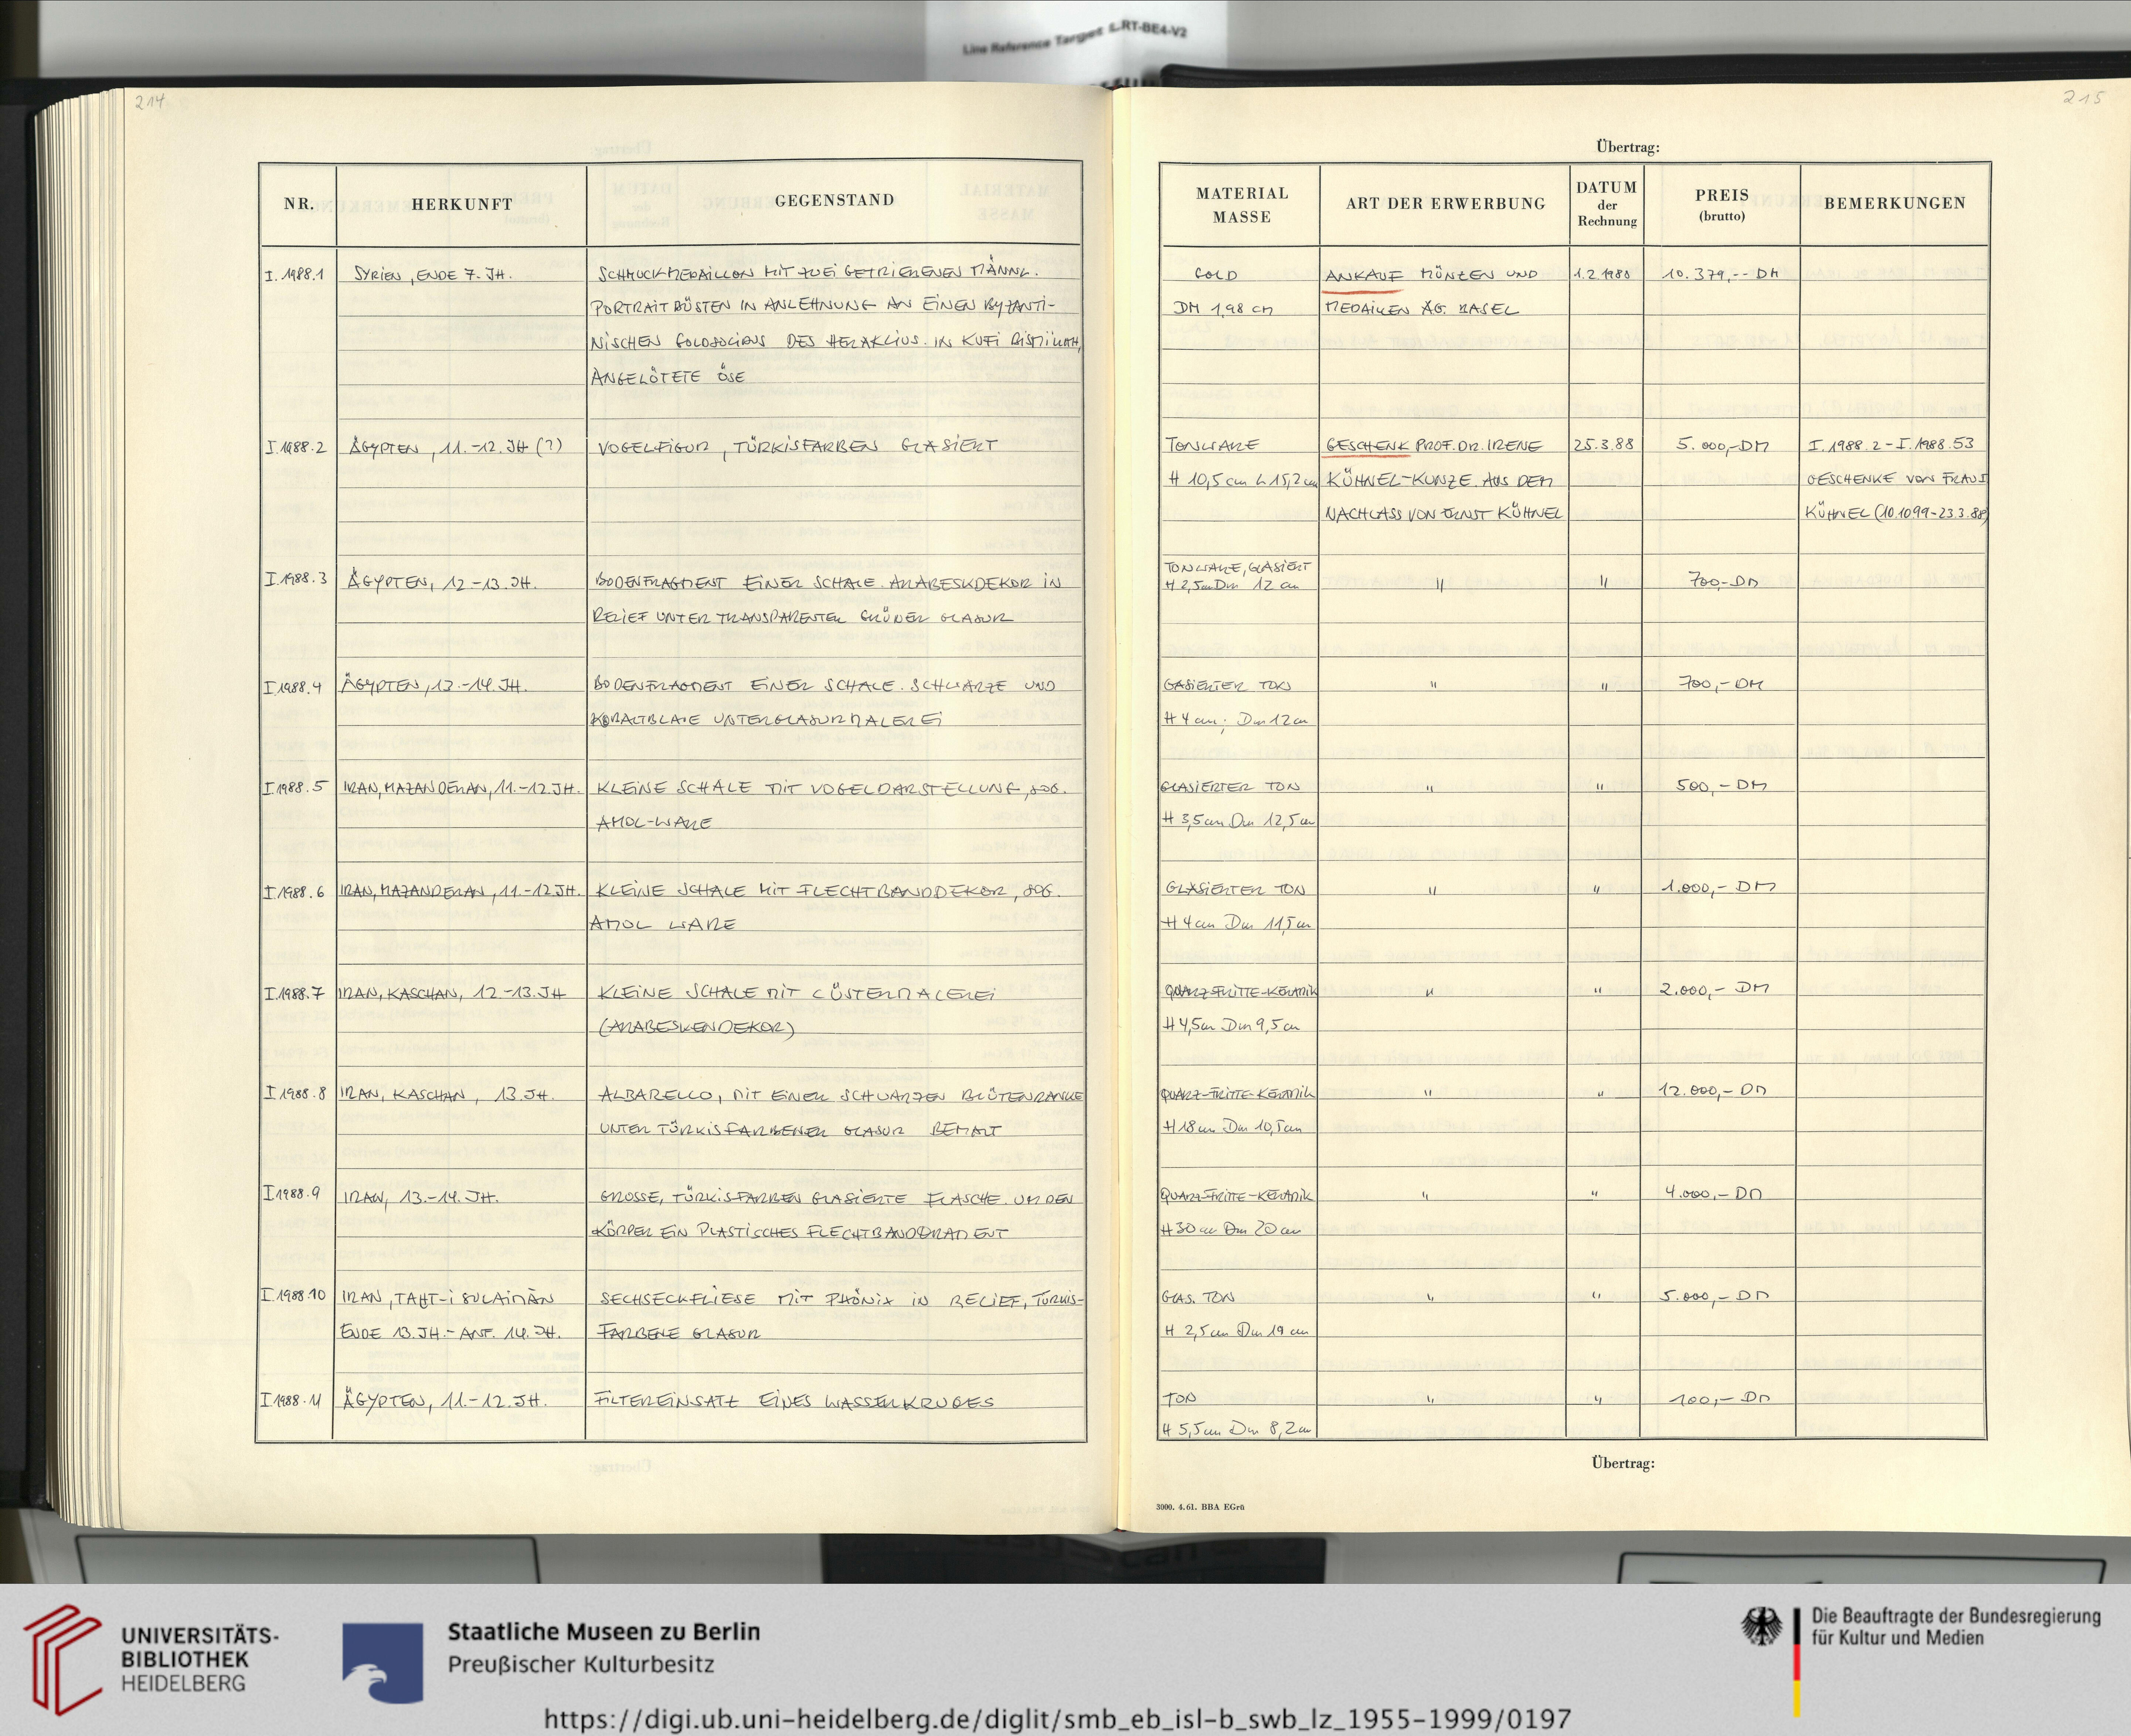 Line Reference Target LRT-BE4-V2
214
215
Übertrag:
NR. HERKUNFT GEGENSTAND
MATERIAL MASSE ART DER ERWERBUNG DATUM der Rechnung PREIS (brutto) BEMERKUNGEN
I.1988.1 SYRIEN, ENDE 7. JH. SCHMUCKMEDAILLON MIT ZWEI GETRIEBENEN MÄNNL.
PORTRAITBÜSTEN IN ANLEHNUNG AN EINEN BYZANTI-
NISCHEN GOLDSOLIDUS DES HERAKLIUS. IN KUFI BISMILLAH,
ANGELÖTETE ÖSE
GOLD ANKAUF MÜNZEN UND 1.2.1988 10.379,-- DM
DM 1,98 cm MEDAILLEN AG. BASEL
I.1988.2 ÄGYPTEN, 11.-12. JH (?) VOGELFIGUR, TÜRKISFARBEN GLASIERT
TONWARE GESCHENK PROF. DR. IRENE 25.3.88 5.000,-DM I.1988.2 - I.1988.53
H 10,5 cm L 15,2 cm KÜHNEL-KUNZE. AUS DEM GESCHENKE VON FRAU I
NACHLASS VON ERNST KÜHNEL KÜHNEL (10.10.99-23.3.88)
I.1988.3 ÄGYPTEN, 12-13. JH. BODENFRAGMENT EINER SCHALE. ARABESKDEKOR IN
RELIEF UNTER TRANSPARENTER GRÜNER GLASUR
TONWARE, GLASIERT
H 2,5cm Dm 12 cm " " 700,-DM
I.1988.4 ÄGYPTEN, 13.-14. JH. BODENFRAGMENT EINER SCHALE. SCHWARZE UND
KOBALTBLAUE UNTERGLASURMALEREI
GASIERTER TON " " 700,- DM
H 4 cm; Dm 12 cm
I.1988.5 IRAN, MAZANDERAN, 11.-12. JH. KLEINE SCHALE MIT VOGELDARSTELLUNG, SOG.
AMOL-WARE
GLASIERTER TON " " 500,- DM
H 3,5 cm Dm 12,5 cm
I.1988.6 IRAN, MAZANDERAN, 11.-12 JH. KLEINE SCHALE MIT FLECHTBANDDEKOR, SOG.
AMOL WARE
GLASIERTER TON " " 1.000,- DM
H 4 cm Dm 11,5 cm
I.1988.7 IRAN, KASCHAN, 12.-13. JH KLEINE SCHALE MIT LÜSTERMALEREI
(ARABESKENDEKOR)
QUARZ-FRITTE-KERAMIK " " 2.000,- DM
H 4,5 cm Dm 9,5 cm
I.1988.8 IRAN, KASCHAN, 13. JH. ALBARELLO, MIT EINER SCHWARZEN BLÜTENRANKE
UNTER TÜRKISFARBENER GLASUR BEMALT
QUARZ-FRITTE-KERAMIK " " 12.000,- DM
H 18 cm Dm 10,5 cm
I.1988.9 IRAN, 13.-14. JH. GROSSE, TÜRKISFARBEN GLASIERTE FLASCHE. UM DEN
KÖRPER EIN PLASTISCHES FLECHTBANDORNAMENT
QUARZ-FRITTE-KERAMIK " " 4.000,- DM
H 30 cm Dm 20 cm
I.1988.10 IRAN, TAHT-I SULAIMĀN SECHSECKFLIESE MIT PHÖNIX IN RELIEF, TÜRKIS-
ENDE 13. JH.- ANF. 14. JH. FARBENE GLASUR
GLAS. TON " " 5.000,- DM
H 2,5 cm Dm 19 cm
I.1988.11 ÄGYPTEN, 11.-12. JH. FILTEREINSATZ EINES WASSERKRUGES
TON " " 100,- DM
H 5,5 cm Dm 8,2 cm
Übertrag:
3000. 4.61. BBA EGrü
UNIVERSITÄTS-
BIBLIOTHEK
HEIDELBERG
Staatliche Museen zu Berlin
Preußischer Kulturbesitz
Die Beauftragte der Bundesregierung
für Kultur und Medien
https://digi.ub.uni-heidelberg.de/diglit/smb_eb_isl-b_swb_lz_1955-1999/0197